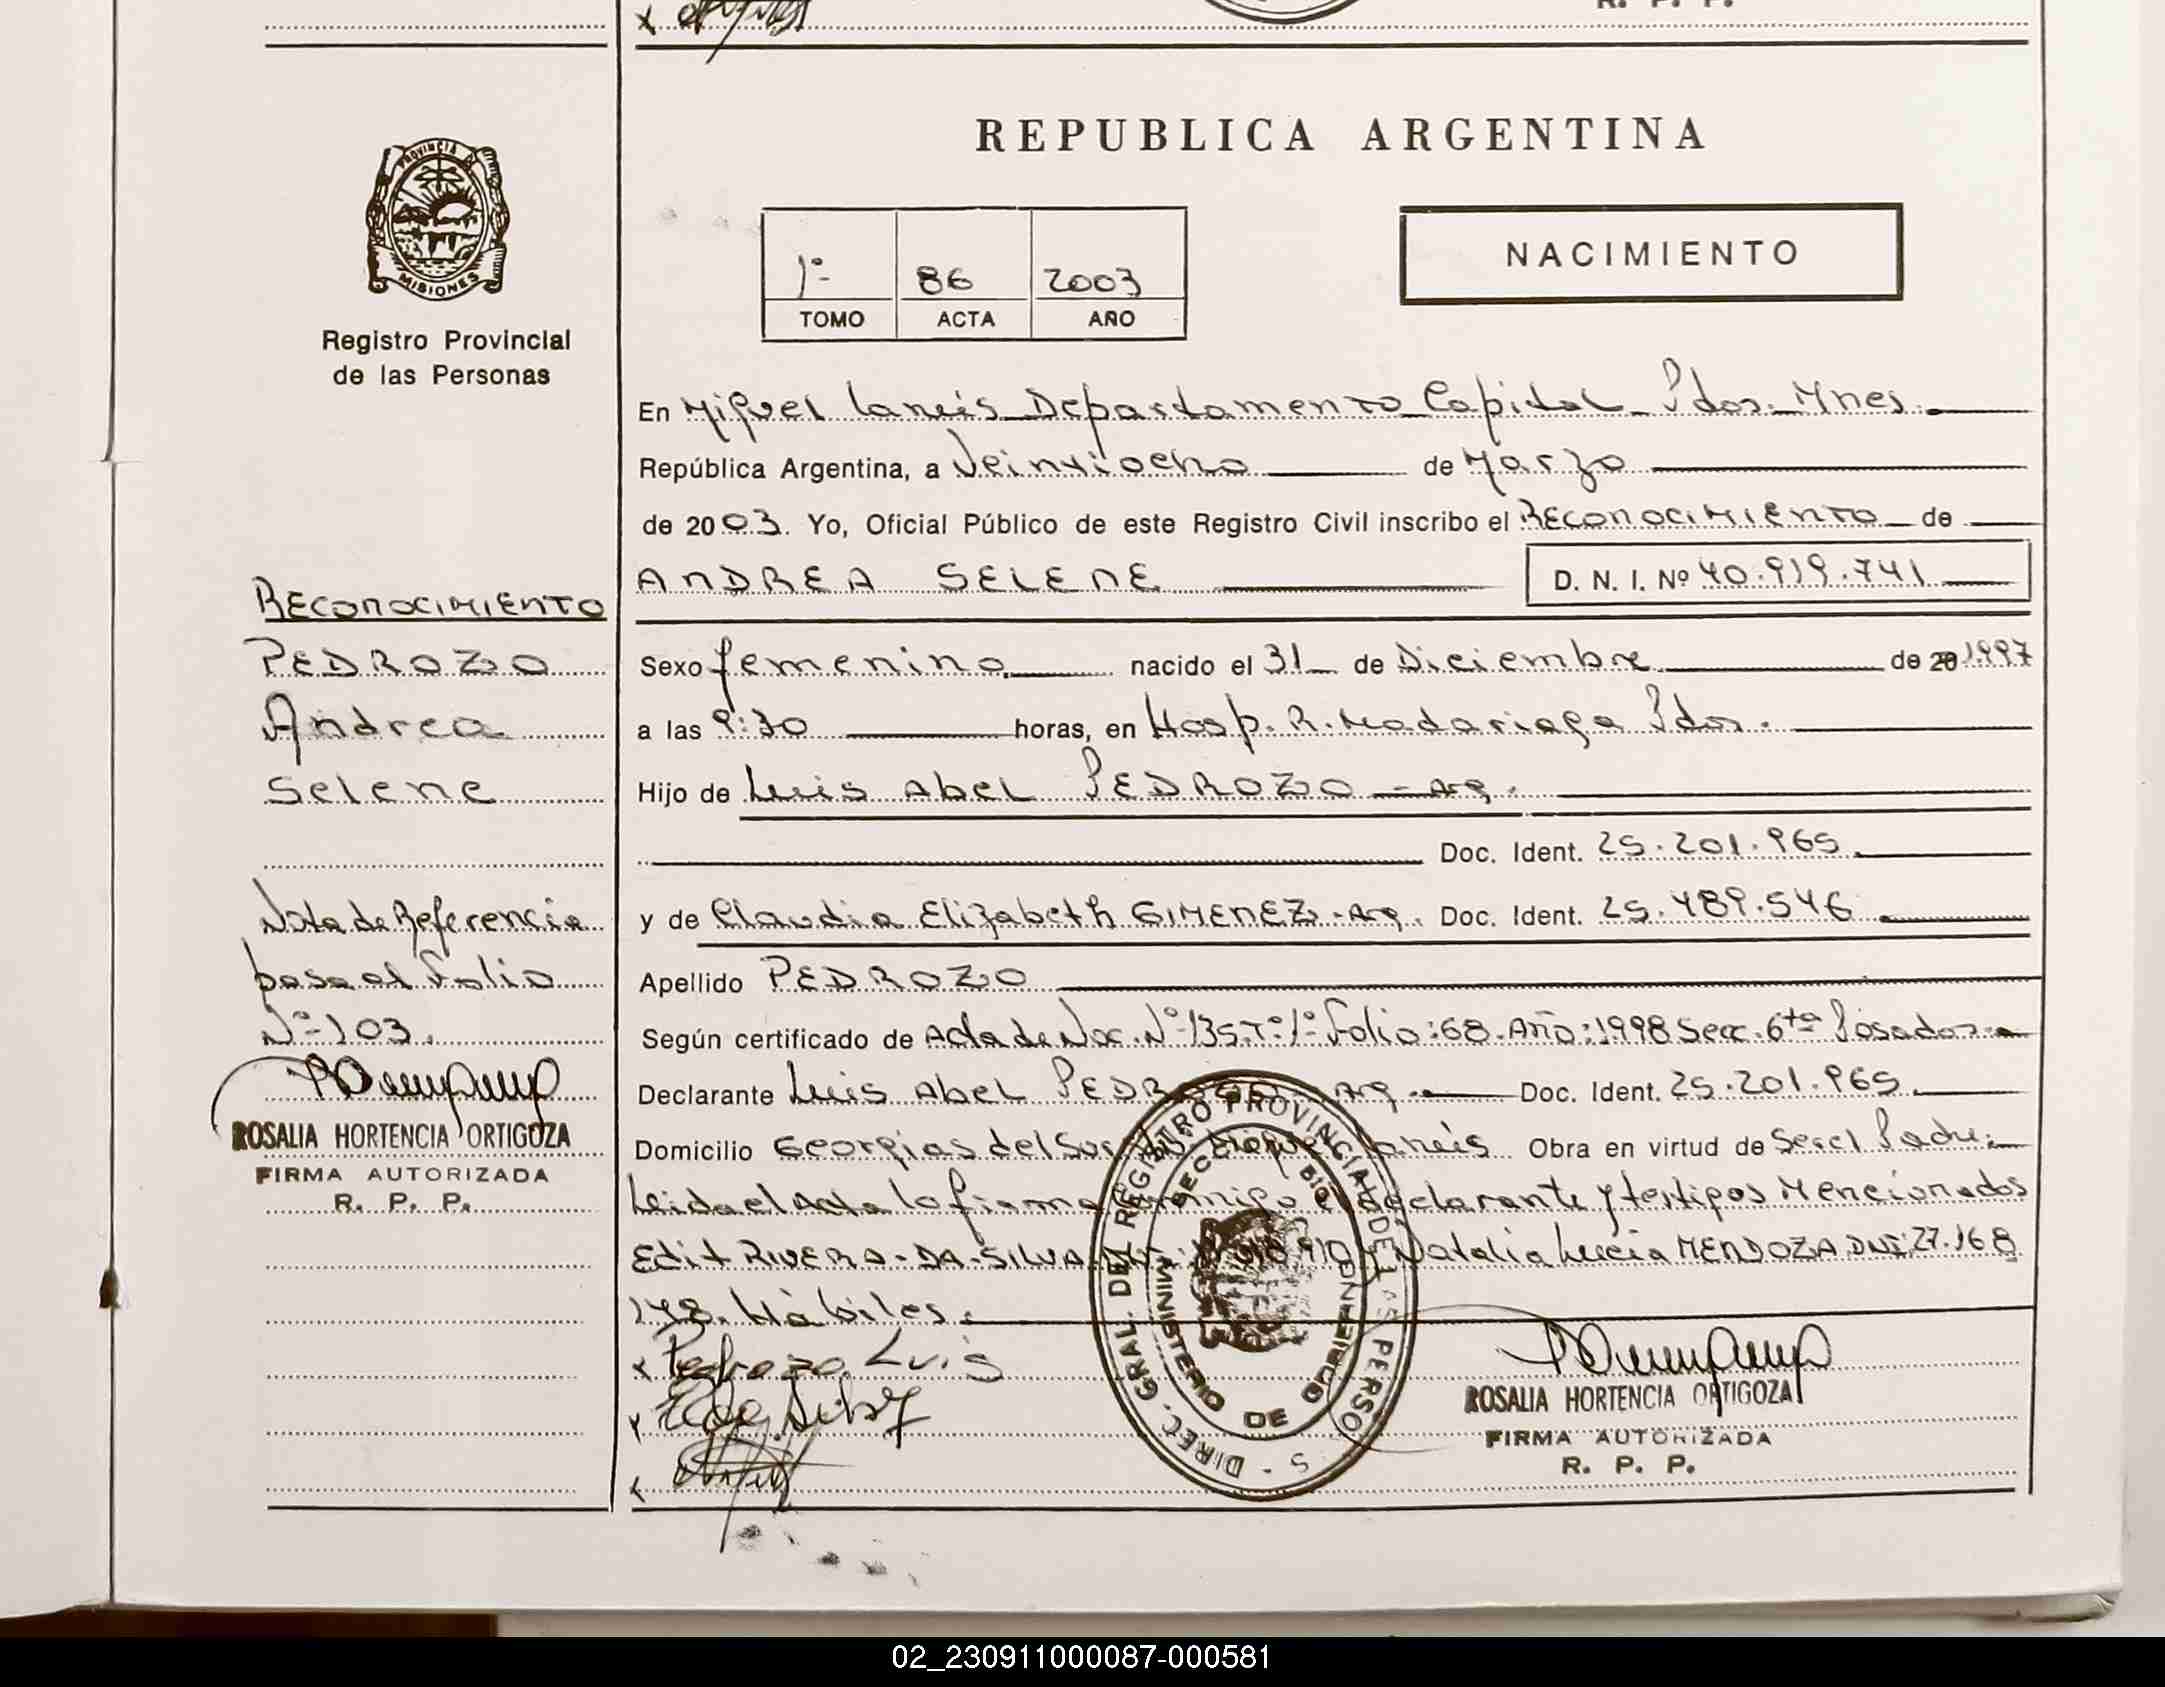 R. P. P.
PROVINCIA DE
MISIONES
Registro Provincial
de las Personas
REPUBLICA ARGENTINA
1º- 86 2003
TOMO ACTA AÑO
NACIMIENTO
En Miguel Lanús Departamento Capital Pdas. Mnes.
República Argentina, a Veintiocho de Marzo
de 2003. Yo, Oficial Público de este Registro Civil inscribo el RECONOCIMIENTO de
ANDREA SELENE D. N. I. Nº 40.919.741
Sexo femenino nacido el 31 de Diciembre de 20 1997
a las 9:30 horas, en Hosp. R. Madariaga Pdas.
Hijo de Luis Abel PEDROZO - Arg.
Doc. Ident. 25.201.965
y de Claudia Elizabeth GIMENEZ - Arg. Doc. Ident. 25.489.546
Apellido PEDROZO
Según certificado de Acta de Nac. Nº 135.Tº 1º Folio:68. Año:1998 Secc. 6ta Posadas
Declarante Luis Abel PEDROZO Arg. Doc. Ident. 25.201.965
Domicilio Georgias del Sur Miguel Lanús Obra en virtud de ser el Padre:
Leida el Acta la firma conmigo el declarante y testigos Mencionados
Edit RIVERO-DA-SILVA y Natalia Lucia MENDOZA DNI:27.168
148. Hábiles.
x Pedrozo Luis
x
x
RECONOCIMIENTO
PEDROZO
Andrea
Selene
Nota de Referencia
pasa al folio
Nº-103.
ROSALIA HORTENCIA ORTIGOZA
FIRMA AUTORIZADA
R. P. P.
DIREC. GRAL. DEL REGISTRO PROVINCIAL DE LAS PERSONAS
MINISTERIO DE GOBIERNO
ROSALIA HORTENCIA ORTIGOZA
FIRMA AUTORIZADA
R. P. P.
02_230911000087-000581